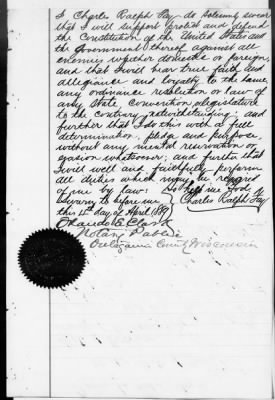 I Charles Ralph Fay do solemnly swear
that I will support protect and defend
the Constitution of the United States and
the Government thereof against all
enemies whether domestic or foreign,
and that I will bear true faith and
allegiance and loyalty to the same
any ordinance resolution or law of
any State Convention or legislature
to the contrary notwithstanding; and
further that I do this with a full
determination pledge and purpose,
without any mental reservation or
evasion whatsoever; and further that
I will well and faithfully perform
all duties which may be required
of me by law: So help me God
Sworn to before me } Charles Ralph Fay
this 4th day of April
Clark
Notary Public
Outagamie County Wisconsin